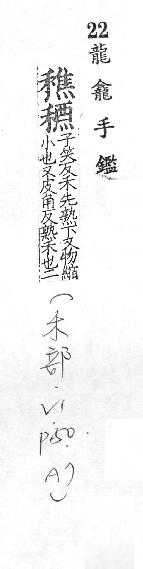 22 龍龕手鑑
穛
子笑反禾先熟下又物縮
小也又皮角反熟禾也二
(禾部·VI p.50. A)